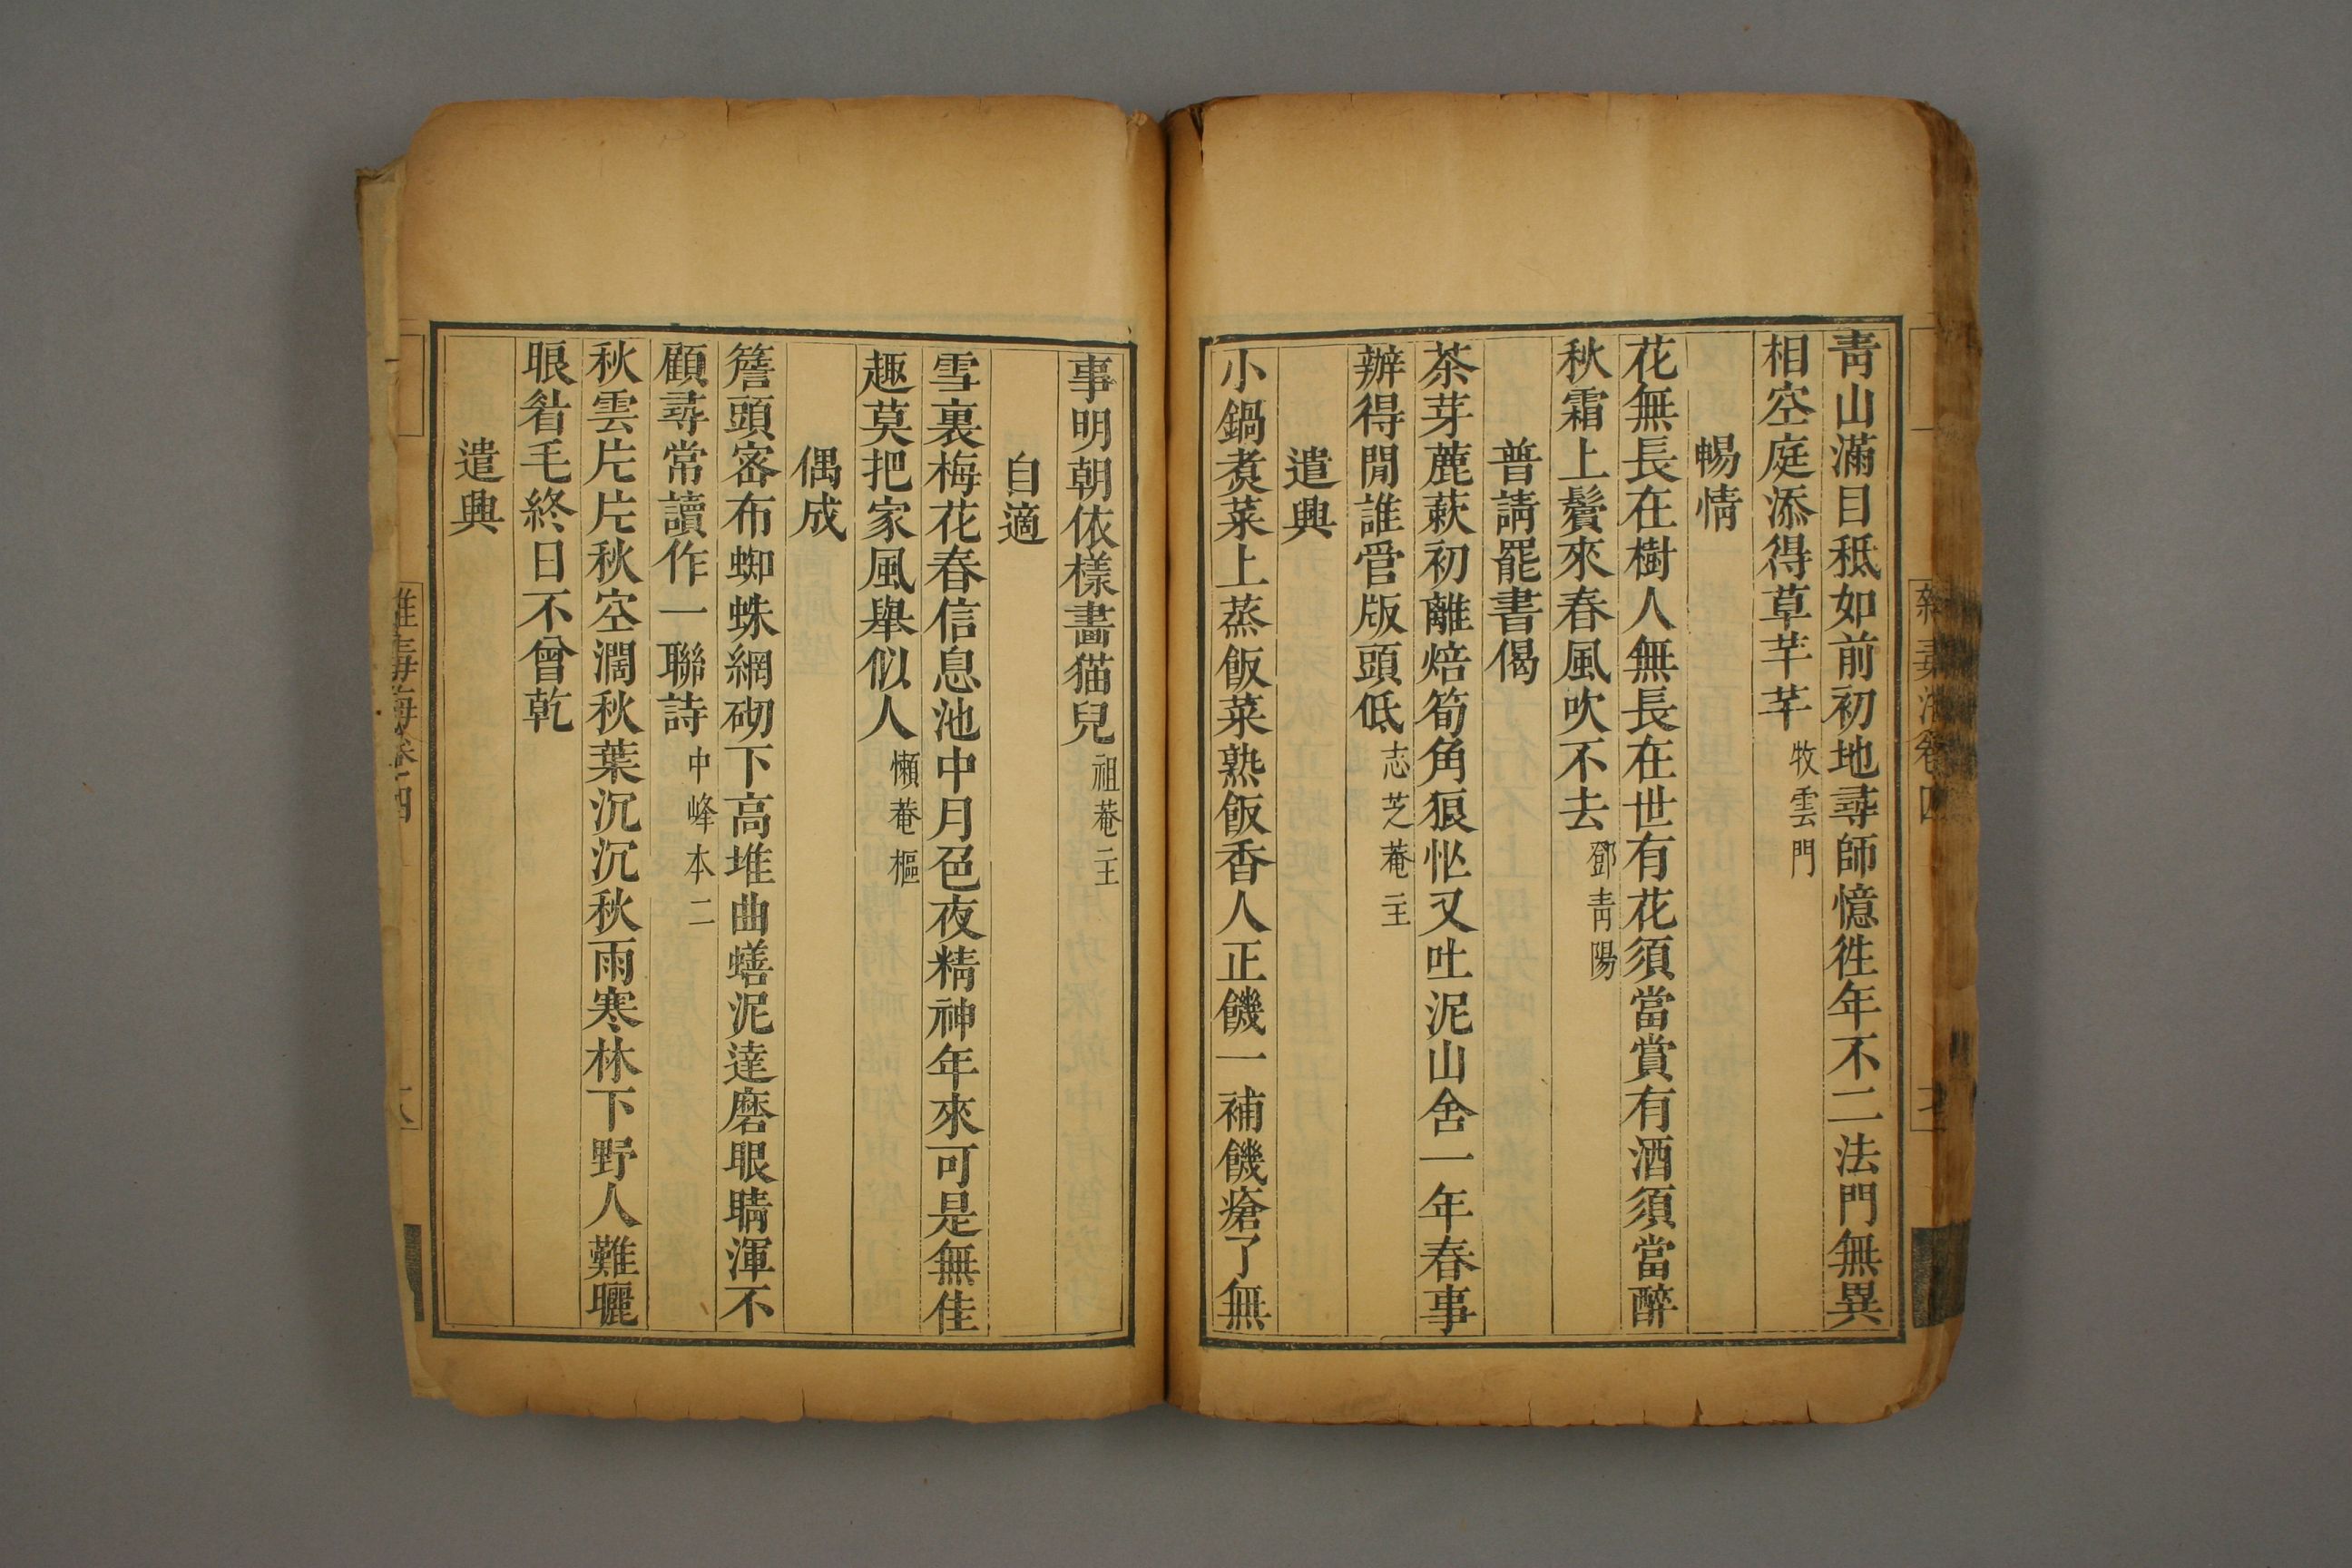 靑山滿目秪如前初地尋師憶徃年不二法門無異
相空庭添得草芊芊牧雲門
暢情
花無長在樹人無長在世有花須當賞有酒須當醉
秋霜上鬢來春風吹不去鄧靑陽
普請罷書偈
茶芽蔍蔌初離焙筍角狼忙又吐泥山舍一年春事
辦得閒誰管版頭低志芝菴主
遣興
小鍋煑菜上蒸飯菜熟飯香人正饑一補饑瘡了無
事明朝依樣畫猫兒祖菴主
自適
雪裏梅花春信息池中月色夜精神年來可是無佳
趣莫把家風舉似人懶菴樞
偶成
簷頭宻布蜘蛛網砌下高堆曲蟮泥達磨眼睛渾不
顧尋常讀作一聯詩中峰本二
秋雲片片秋空濶秋葉沉沉秋雨寒林下野人難曬
眼睂毛終日不曾乾
遣興